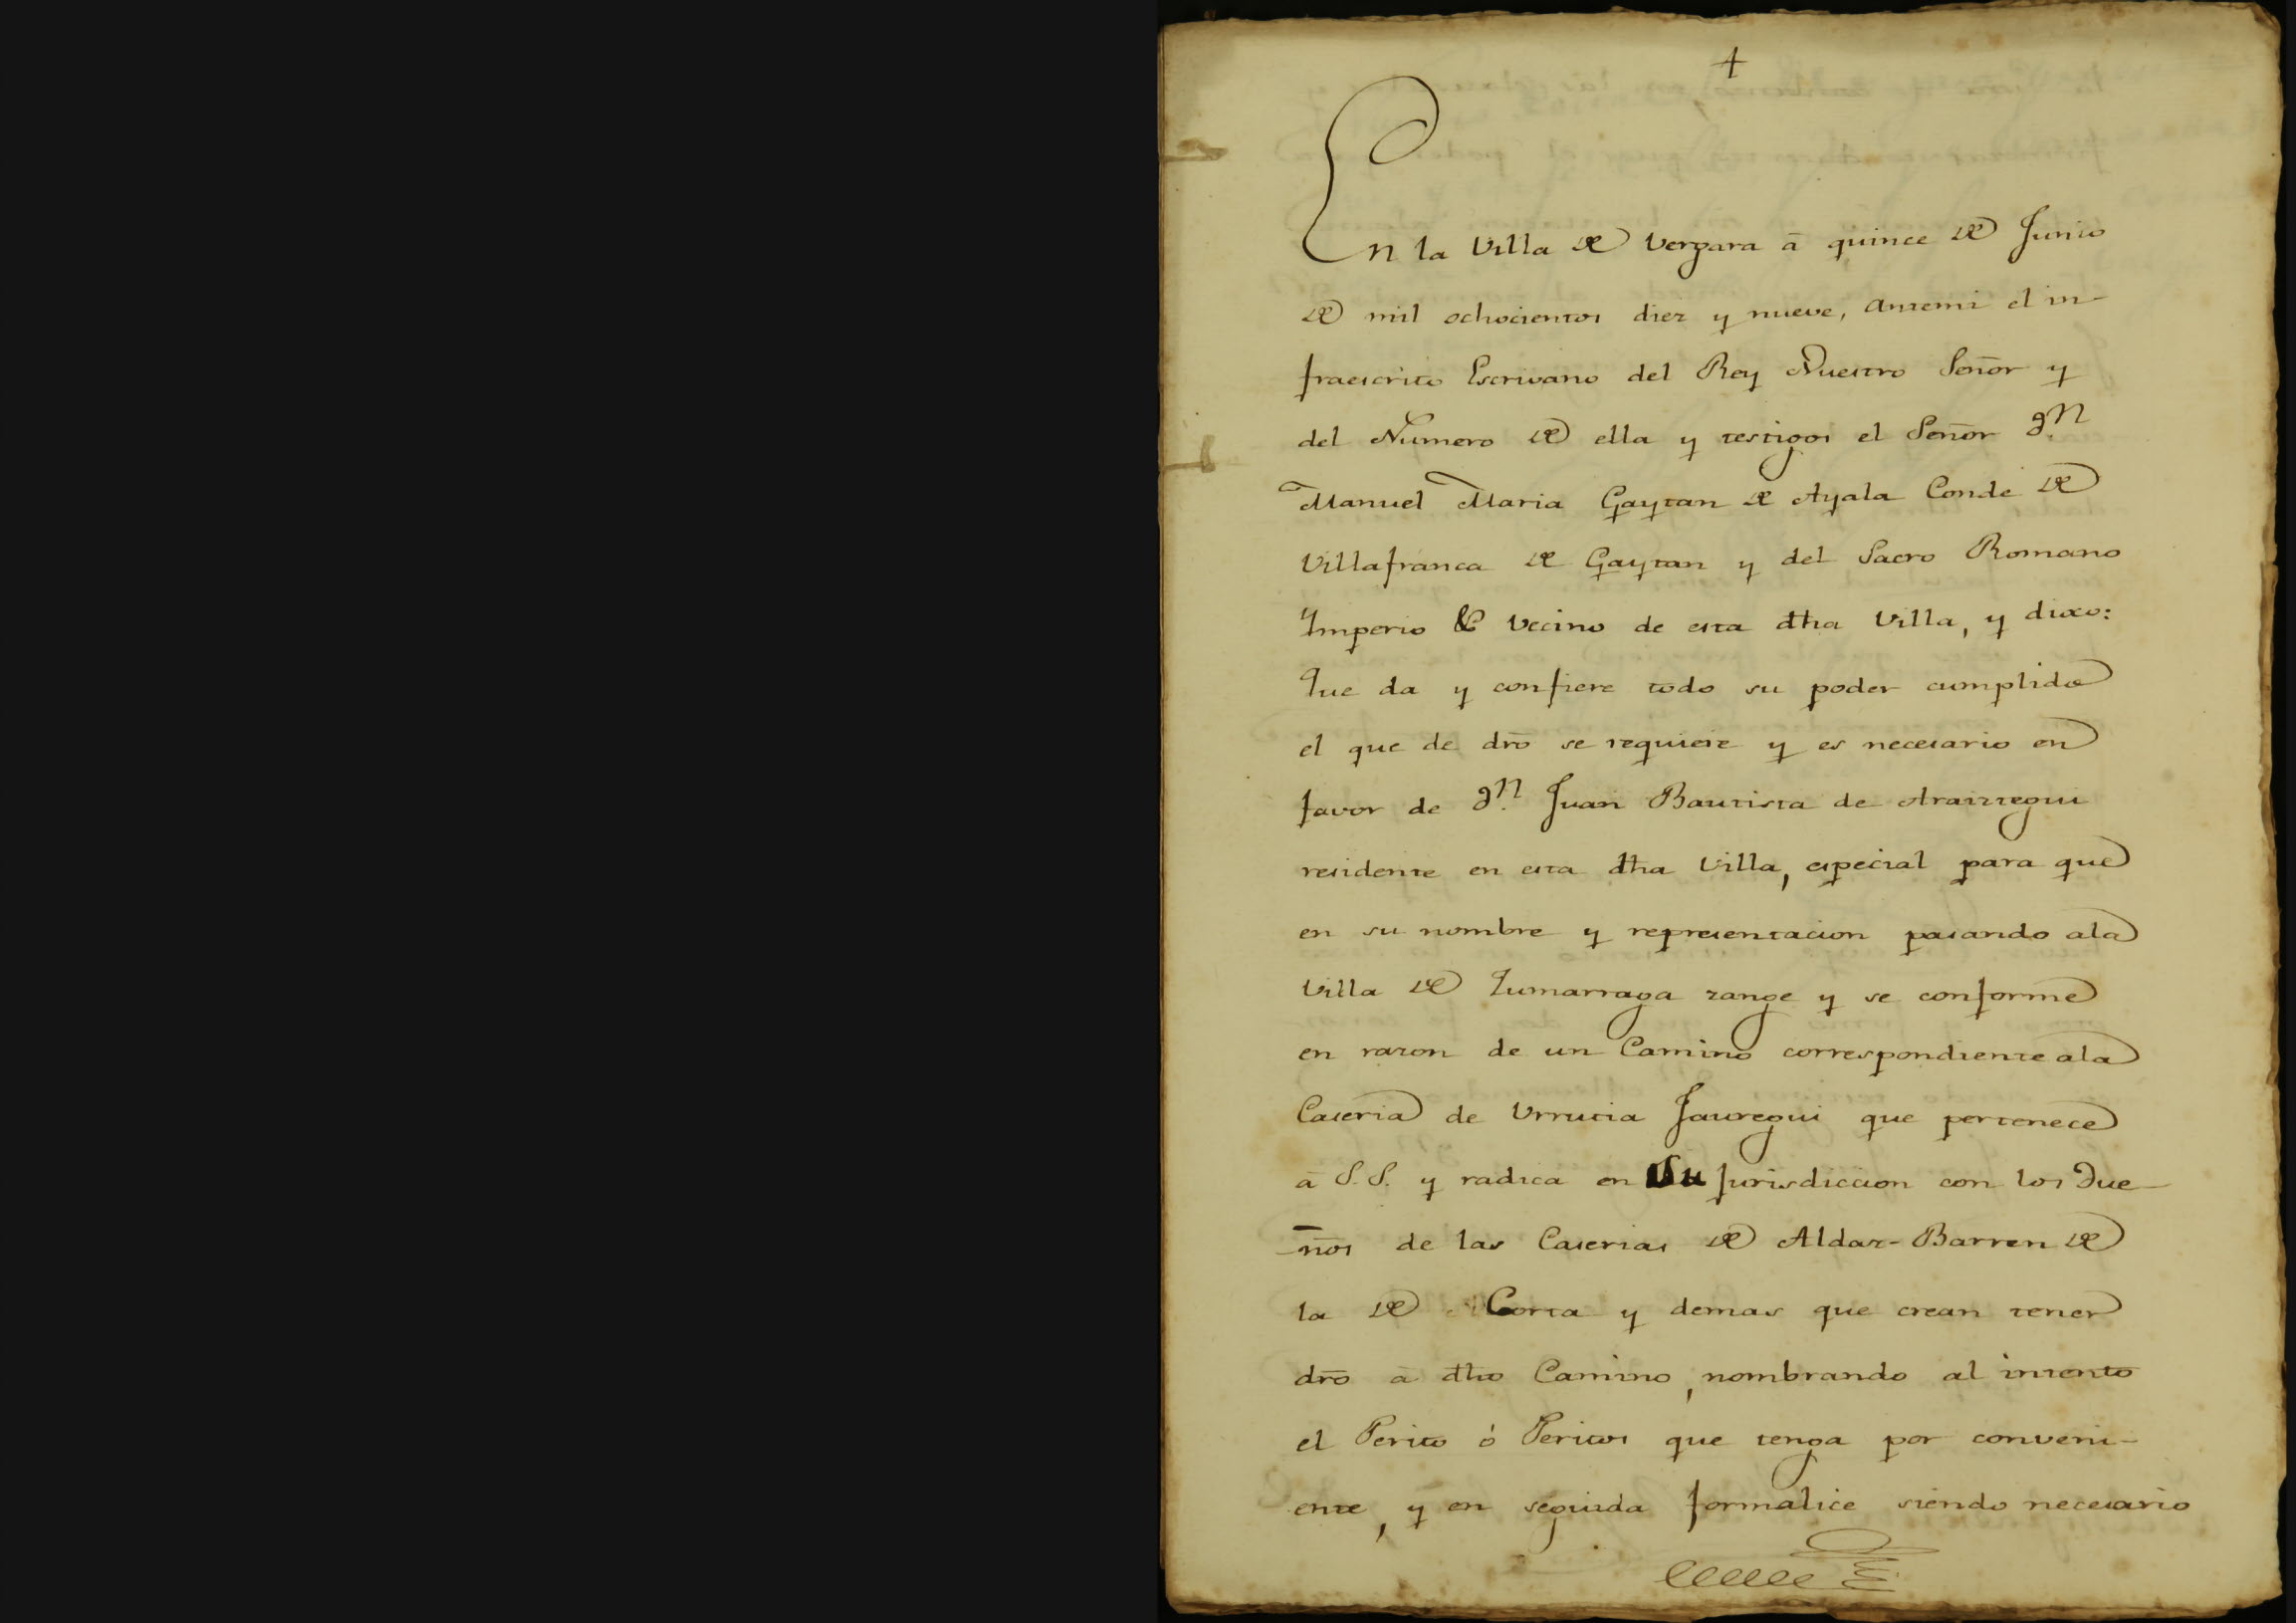 +
En la Villa de Vergara â quince de Junio
de mil ochocientos diez y nueve, antemi el in-
fraescrito Escrivano del Rey Nuestro Señor y
del Numero de ella y testigos el Señor Dn.
Manuel Maria Gaytan de Ayala Conde de
Villafranca de Gaytan y del Sacro Romano
Ymperio & Vecino de esta dha Villa, y dixo:
Que da y confiere todo su poder cumplido
el que de dro se requiere y es necesario en
favor de Dn. Juan Bautista de Araiztegui
residente en esta dha Villa, especial para que
en su nombre y representacion pasando ala
Villa de Zumarraga zange y se conforme
en razon de un Camino correspondiente ala
Caseria de Urrutia Jauregui que pertenece
â S.S. y radica en Su Jurisdiccion con los Due-
ños de las Caserias de Aldaz-Barren de
la de Corta y demas que crean tener
dro â dho Camino, nombrando al intento
el Perito ó Peritos que tenga por conveni-
ente, y en seguida formalice siendo necesario